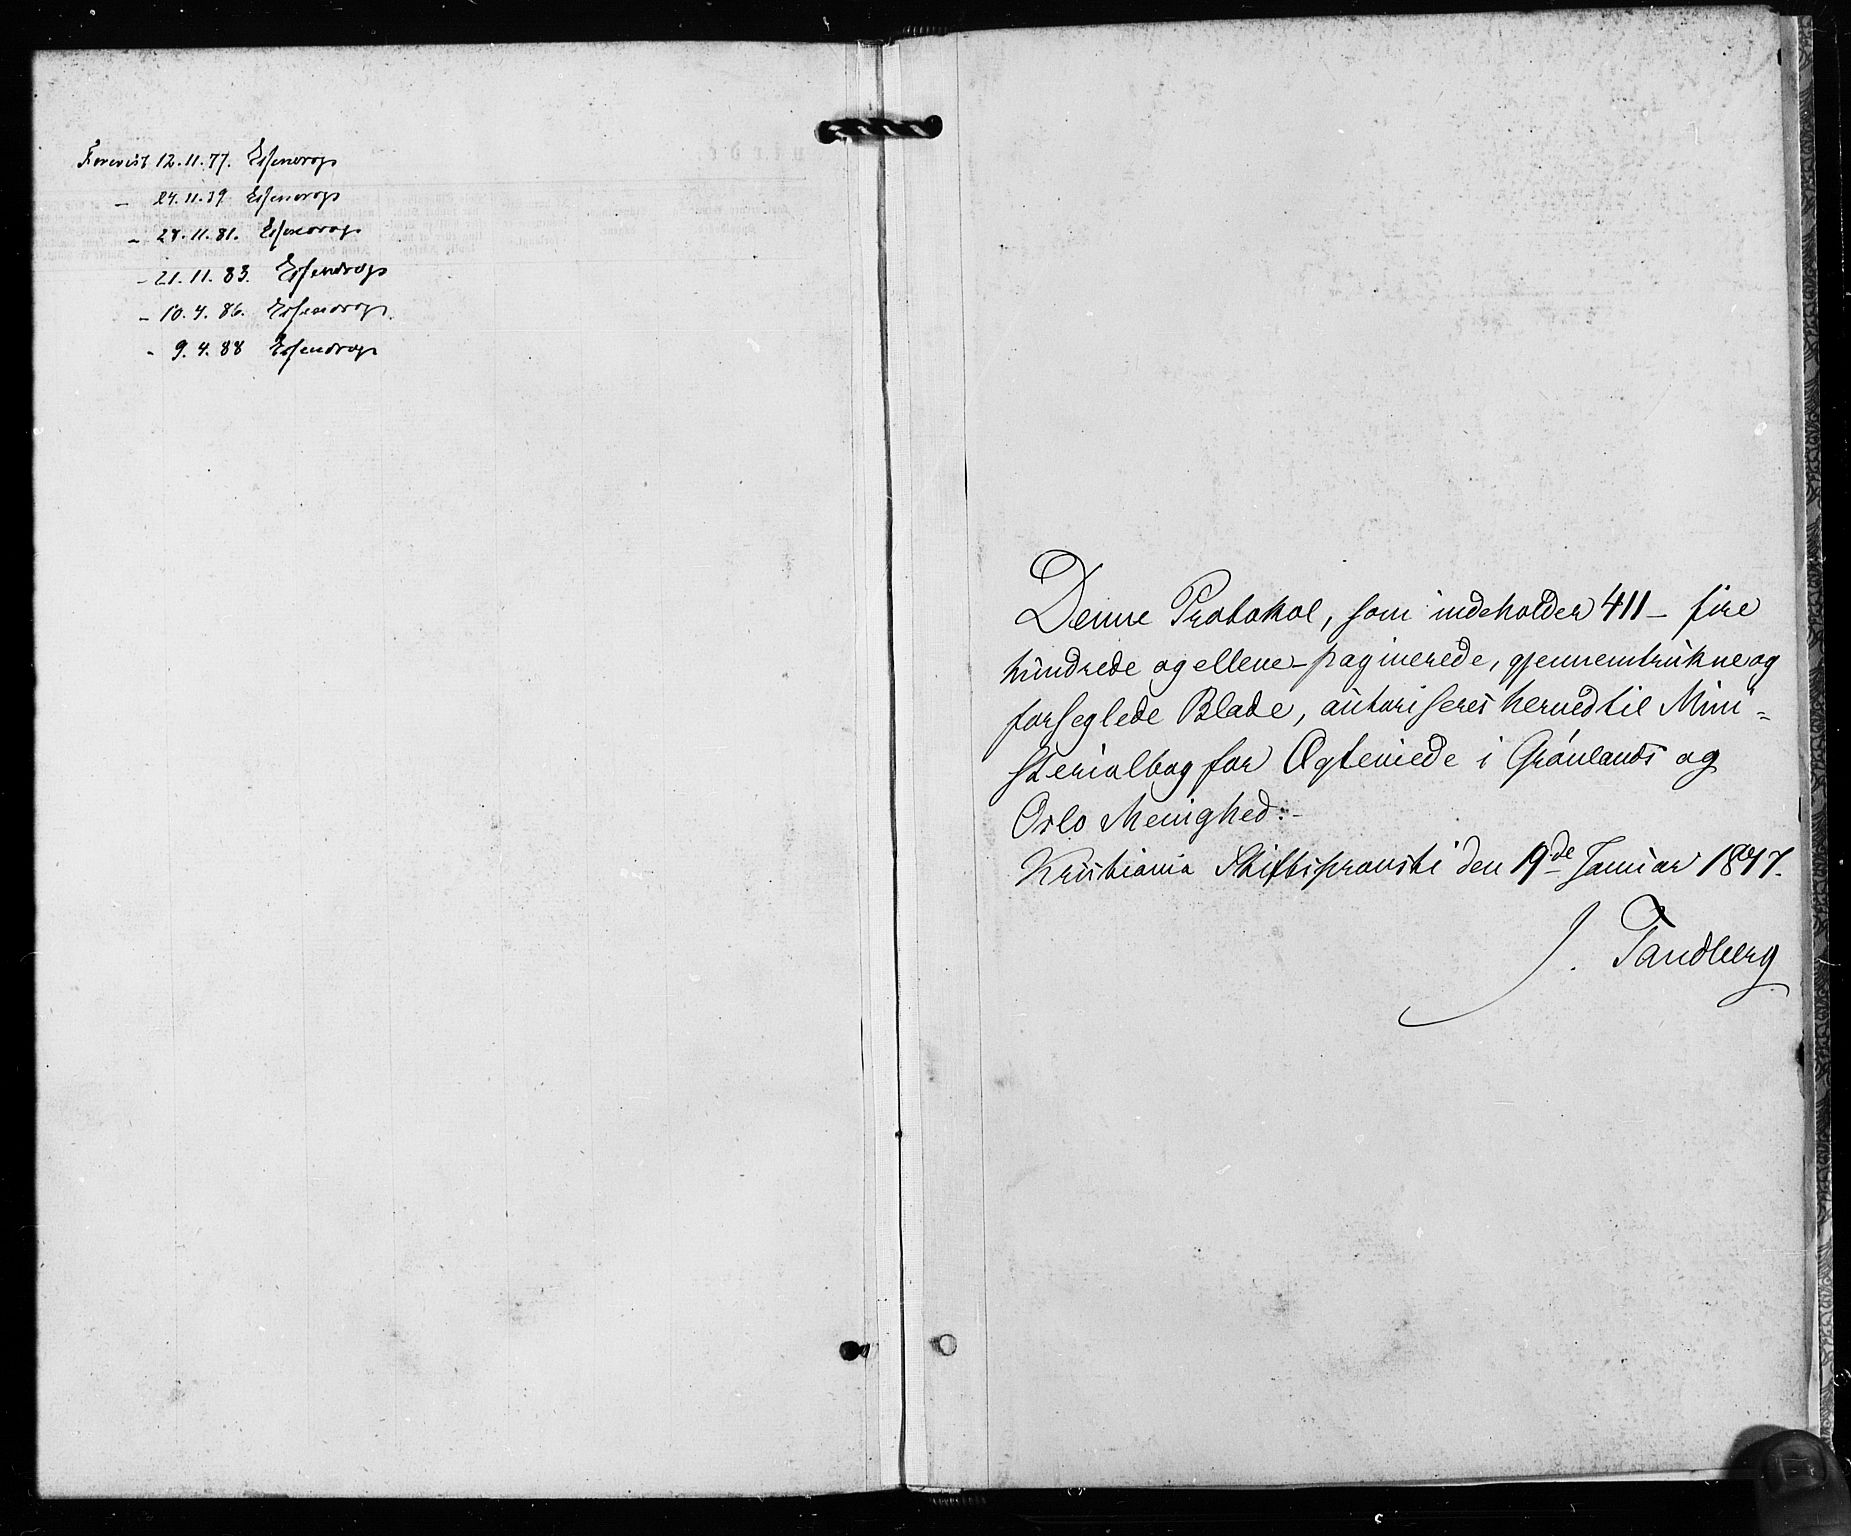 Forevist 12.11.77. Essendrop
– 24.11.79 Essendrop
– 28.11.81. Essendrop
– 21.11.83. Essendrop
– 10.4.86. Essendrop.
– 9.4.88 Essendrop
Denne Protokol, som indeholder 411 – fire
hundrede og elleve – paginerede, gjennemtrukne og
forseglede Blade, autoriseres herved til Mini=
sterialbog for Ægteviede i Grønlands og
Oslo Menighed:-
Kristiania Stiftsprovsti den 19de Januar 1877.
J. Tandberg